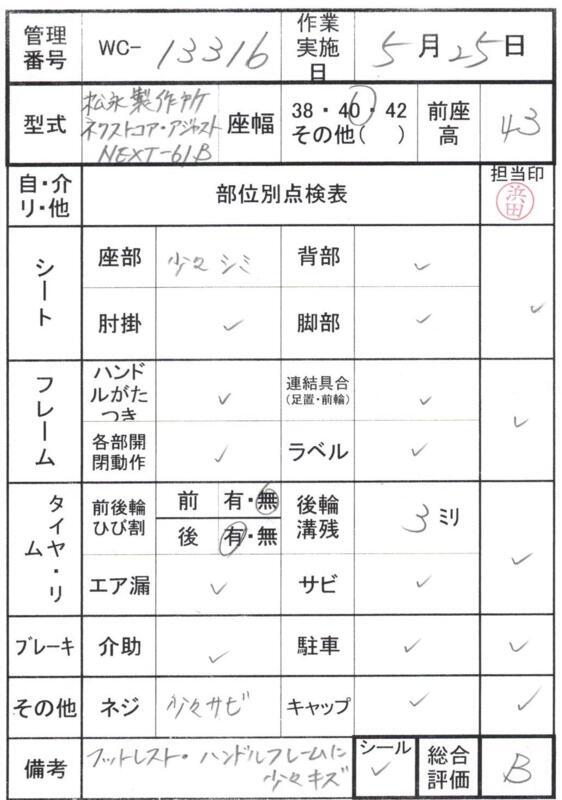 管理番号 WC- 13316 作業実施日 5月25日
型式 松永製作所 ネクストコア・アジャスト NEXT-61B 座幅 38・40・42 その他( ) 前座高 43
自・介リ・他 部位別点検表 担当印 浜田
シート 座部 少々シミ 背部 ✓ ✓
肘掛 ✓ 脚部 ✓
フレーム ハンドルがたつき ✓ 連結具合(足置・前輪) ✓ ✓
各部開閉動作 ✓ ラベル ✓
タイヤ・リム 前後輪ひび割 前 有・無 後輪溝残 3ミリ ✓
後 有・無
エア漏 ✓ サビ ✓
ブレーキ 介助 ✓ 駐車 ✓ ✓
その他 ネジ 少々サビ キャップ ✓ ✓
備考 フットレスト・ハンドルフレームに少々キズ シール ✓ 総合評価 B